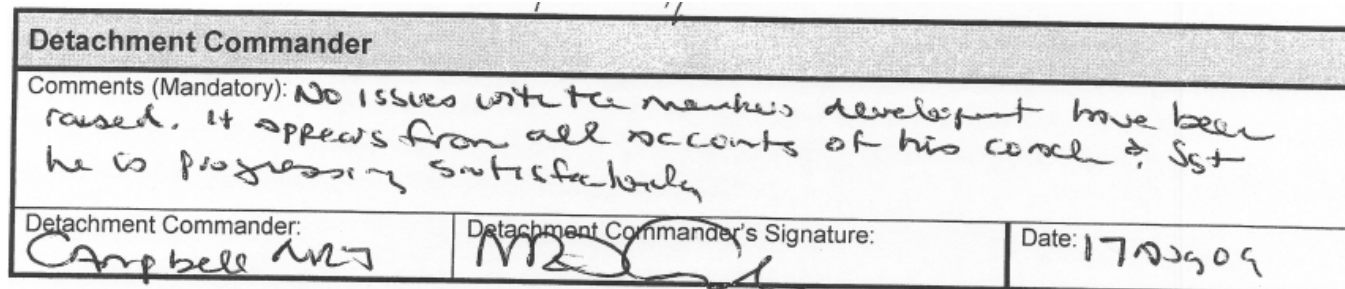 Detachment Commander
Comments (Mandatory): No issues with the member's development have been
raised. It appears from all accounts of his coach & Sgt
he is progressing satisfactorily
Detachment Commander:
Campbell
Detachment Commander's Signature:
Date: 17 Aug 09